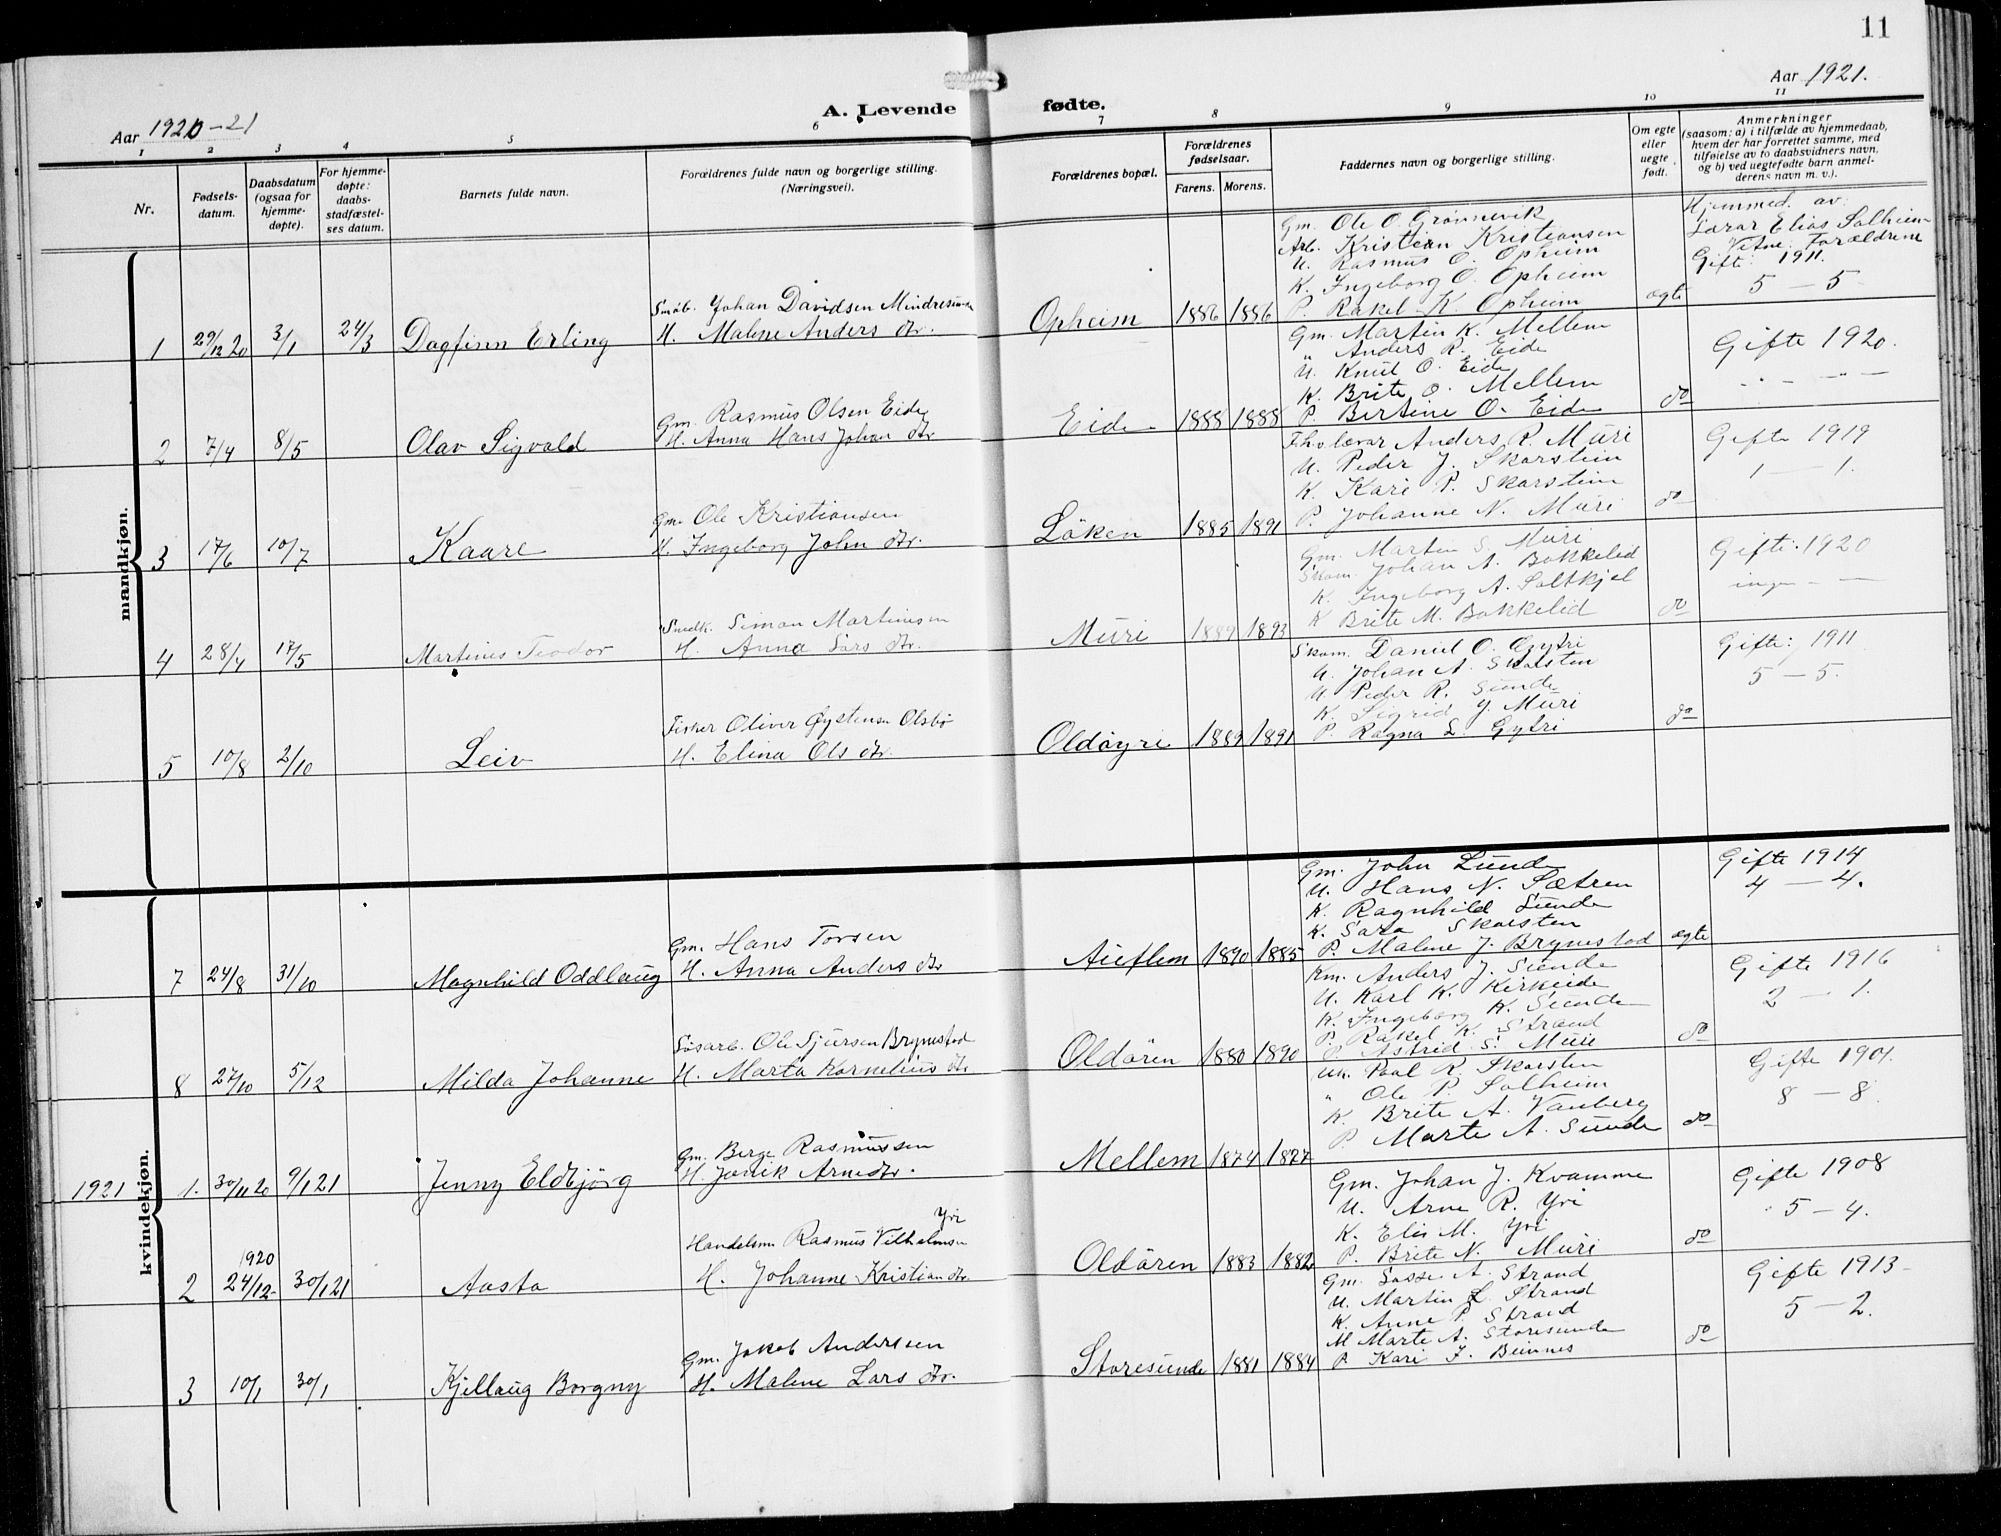 11
Aar 1920-21
A. Levende fødte.
Aar 1921.
1 2 3 4 5 6 7 8 9 10 11
Nr.
Fødsels-
datum.
Daabsdatum
(ogsaa for
hjemme-
døpte).
For hjemme-
døpte:
daabs-
stadfæstel-
ses datum.
Barnets fulde navn.
Forældrenes fulde navn og borgerlige stilling.
(Næringsvei).
Forældrenes bopæl.
Forældrenes
fødselsaar.
Farens. Morens.
Faddernes navn og borgerlige stilling.
Om egte
eller
uegte
født.
Anmerkninger
(saasom: a) i tilfælde av hjemmedaab,
hvem der har forrettet samme, med
tilføielse av to daabsvidners navn,
og b) ved uegtefødte barn anmel-
derens navn m. v.).
mandkjøn.
1 29/12 20 3/1 24/3 Dagfinn Erling
Småb. Johan Davidsen Mindresunde
H. Malene Anders dtr.
Opheim 1886 1886
Gm. Ole O. Grønnevik
Arb. Kristian Kristiansen
U. Rasmus O. Opheim
K. Ingeborg O. Opheim
P. Rakel K. Opheim
egte
Hjemmed. av:
Lærar Elias Solheim
Vitne: Forældrene
Gift: 1911.
5 – 5
2 7/4 8/5 Olav Sigvald
Gm. Rasmus Olsen Eide
H. Anna Hans Johan dtr
Eide 1888 1888
Gm. Martin K. Mellem
" Anders R. Eide
U. Knut O. Eide
K. Brite O. Mellem
P. Bertine O. Eide
do
Gifte 1920.
3 17/6 10/7 Kaare
Gm. Ole Kristiansen
H. Ingeborg John dtr.
Løken 1885 1891
Anders R. Muri
U. Peder J. Skarstein
K. Kari P. Skarstein
P. Johanne N. Muri
do
Gifte 1919
1 – 1.
4 28/4 17/5 Martines Teodor
Smedk. Simon Martinusen
H. Anna Lars dtr.
Muri 1889 1893
Gm. Martin S. Muri
Skom. Johan A. Bakkelid
K. Ingeborg A. Saltkjel
K Brite M. Bakkelid
do
Gifte: 1920
ingen – –
5 10/8 2/10 Leiv
Fisker Oliver Øystensen Olsbø
H. Elina Ols dtr.
Oldøyri 1889 1891
Skom. Daniel O. Gytri
U. Johan A. Skarsten
U. Peder R. Sunde
K. Sigrid J. Muri
P. Ragna L. Gytri
do
Gifte: 1911
5 – 5.
kvindekjøn.
7 24/8 31/10 Magnhild Oddlaug
Gm. Hans Torsen
H. Anna Anders dtr
Auflem 1890 1885
Gm. John Sunde
U. Hans N. Sætren
K. Ragnhild Sunde
K. Sara Skarsten
P. Malene J. Brynestad
egte
Gifte 1914
4 – 4.
8 27/10 5/12 Milda Johanne
Løsarb. Ole Sjursen Brynestad
H. Marta Kornelius dtr
Oldören 1880 1890
Km. Anders J. Sunde
U. Karl K. Kirkeide
K. Ingeborg K. Sunde
P. Rakel K. Strand
P. Astrid S. Muri
do
Gifte 1916
2 – 1.
1921 1. 30/11 20 9/1 21 Jenny Eldbjörg
Gm. Berge Rasmussen
H. Jorik Arnedtr.
Mellem 1874 1877
Um. Paal R. Skarsten
" Ole P. Solheim
K. Brite A. Vanberg
P Marte A. Sunde
do
Gifte 1901.
8 – 8.
2 1920 24/12 30/1 21 Aasta
Handelsm Rasmus Vilhelmsen Yri
H. Johanne Kristian dtr.
Oldören 1883 1882
Gm. Johan J. Kvamme
U. Arne R. Yri
K. Elis M. Yri
P. Brite N. Muri
do
Gifte 1908
5 – 4.
3 10/1 30/1 Kjellaug Borgny
Gm. Jakob Anderssen
H. Malene Lars dtr.
Storesunde 1881 1884
Gm. Lasse A. Strand
U. Martin L. Strand
K. Anne P. Strand
M Marte A. Storesunde
P. Kari J. Beinnes
do
Gifte 1913
5 – 2.